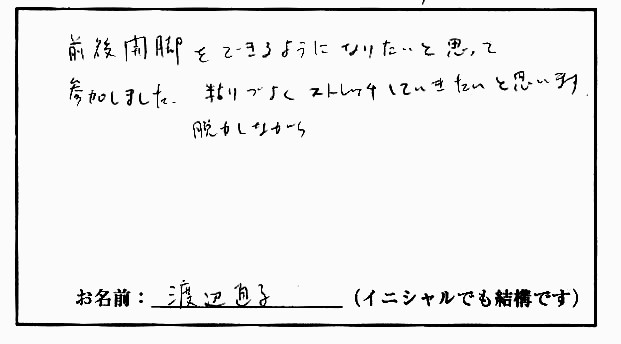 前後開脚をできるようになりたいと思って
参加しました。粘りづよくストレッチしていきたいと思います。
脱力しながら
お名前：渡辺直子（イニシャルでも結構です）